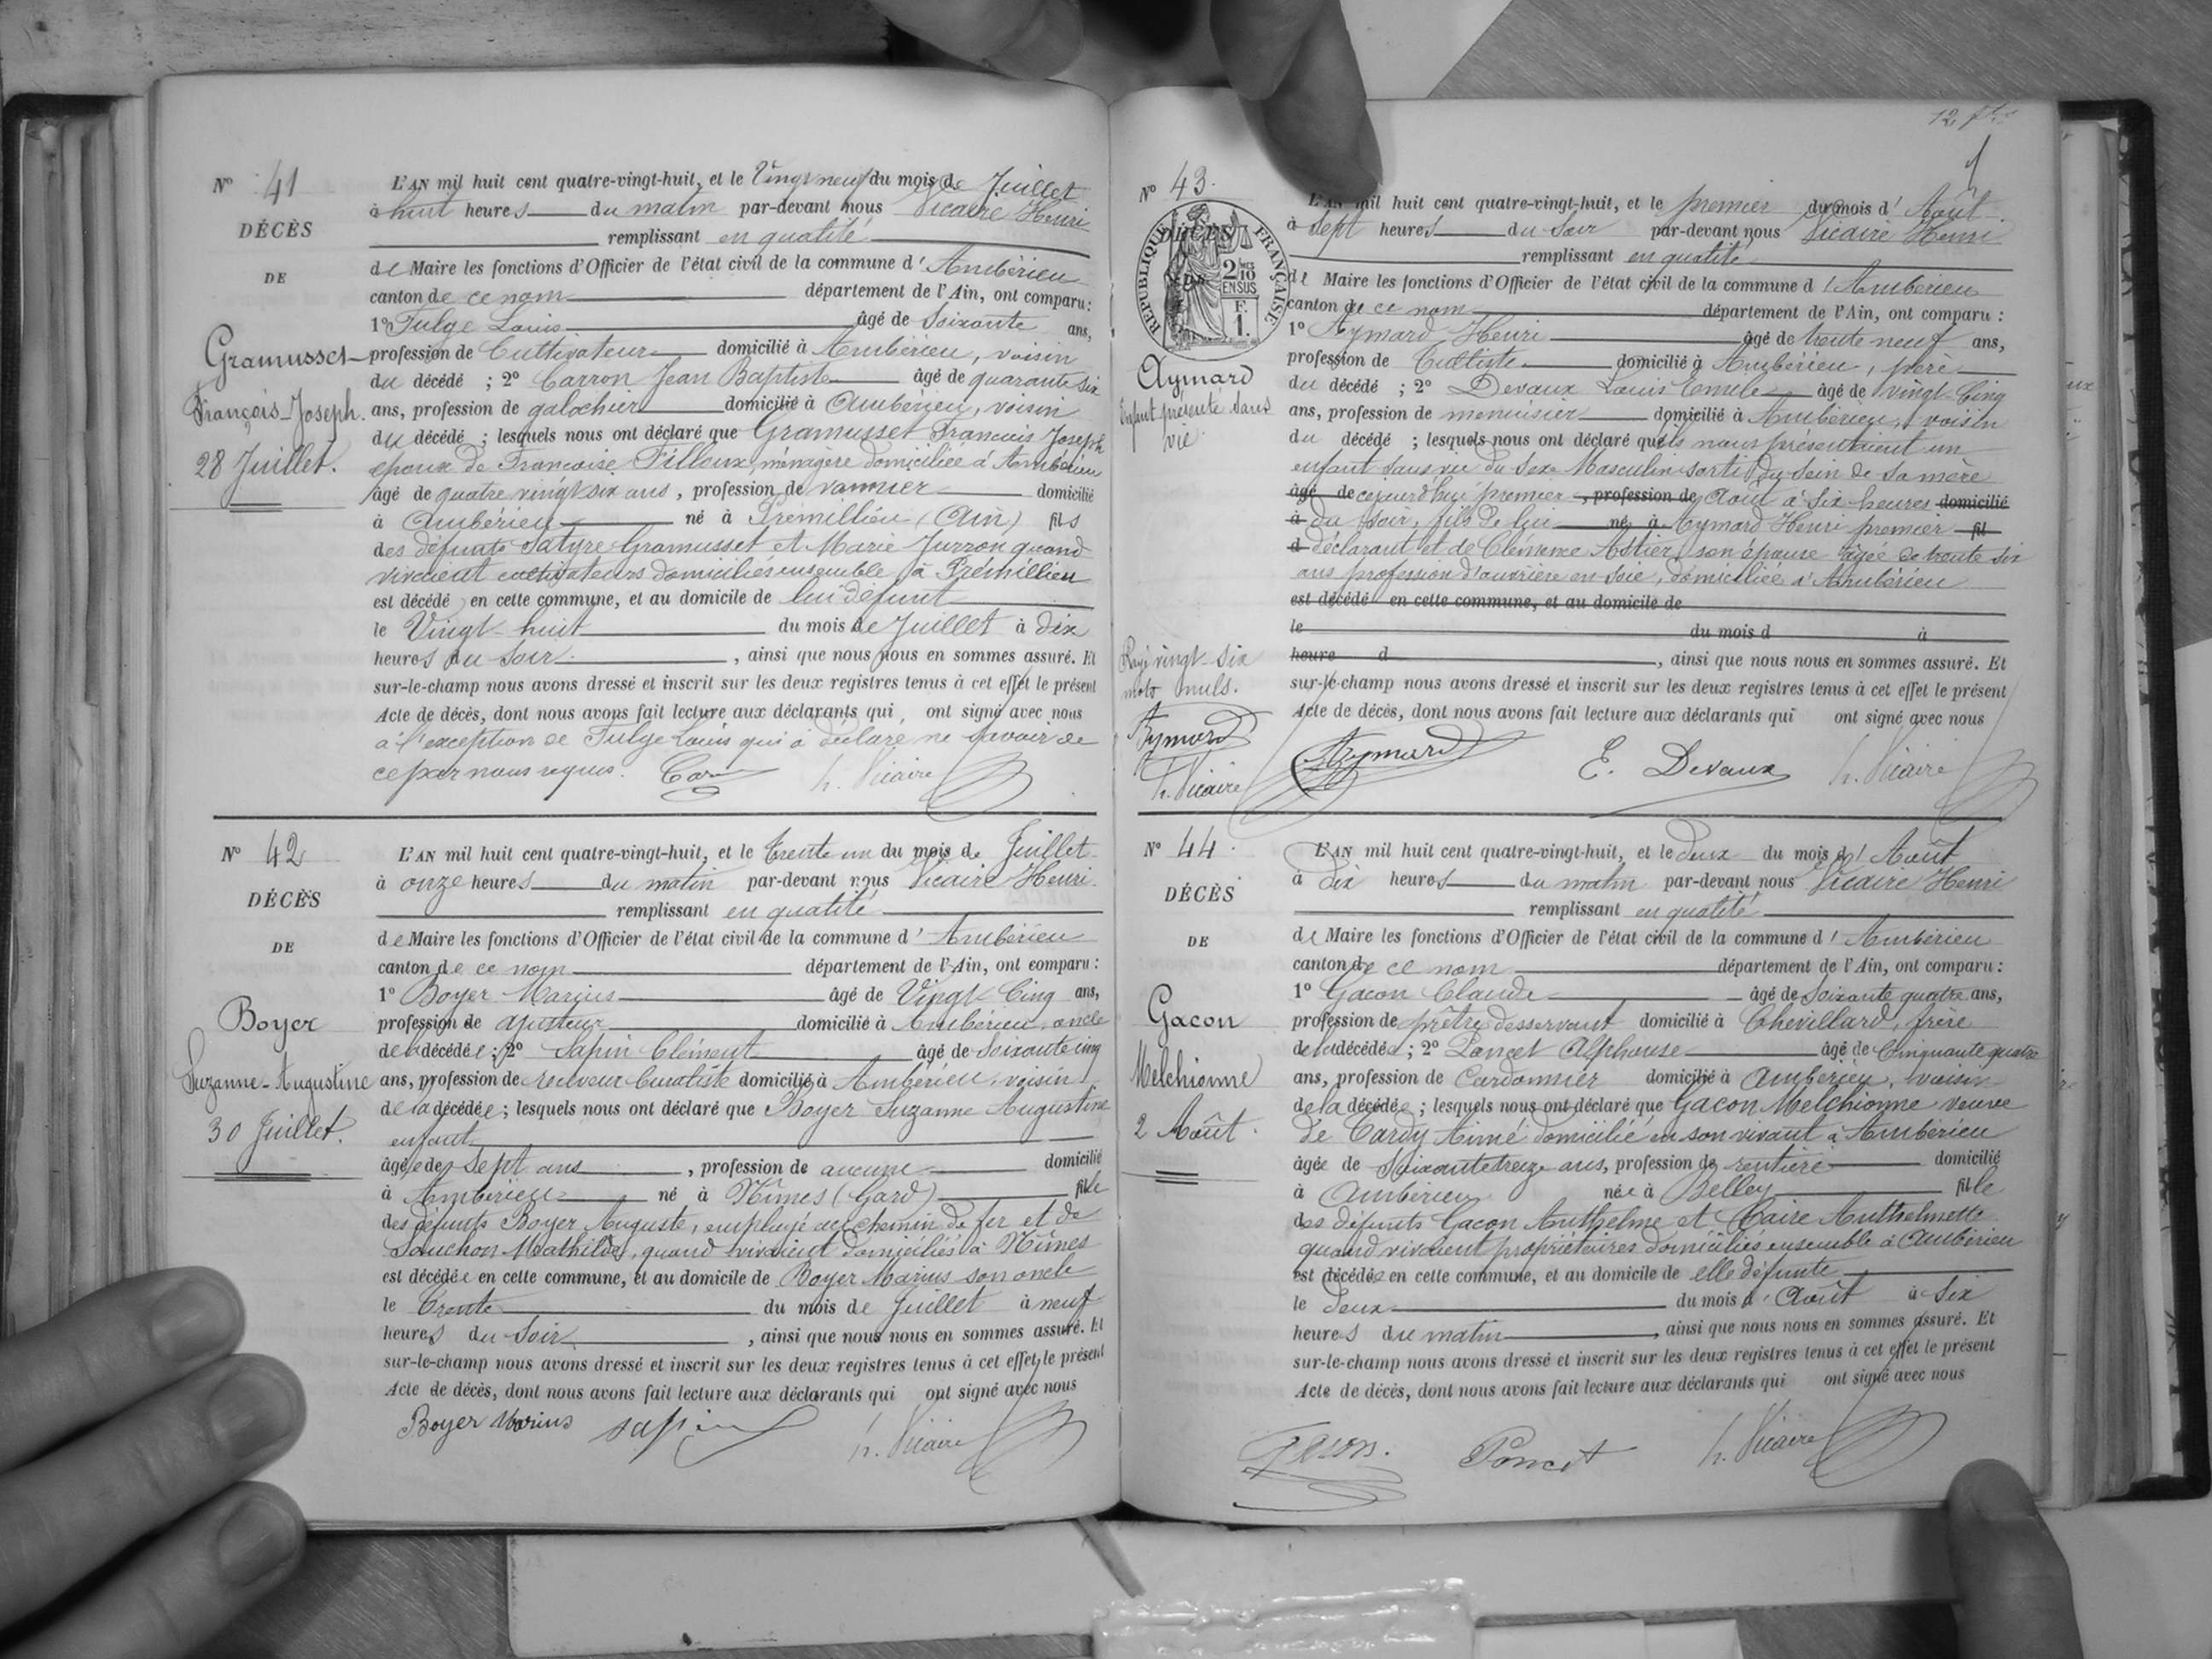 N° 41
DÉCÈS
DE
Gramusset
François-Joseph.
28 Juillet.
L'AN mil huit cent quatre-vingt-huit, et le Vingt neuf du mois de Juillet
à huit heures du matin par-devant nous Vicaire Henri
remplissant en qualité
de Maire les fonctions d'Officier de l'état civil de la commune d'Ambérieu
canton de ce nom département de l'Ain, ont comparu :
1° Fulge Louis âgé de Soixante ans,
profession de Cultivateur domicilié à Ambérieu, voisin
du décédé ; 2° Carron Jean Baptiste âgé de quarante six
ans, profession de galochier domicilié à Ambérieu, voisin
du décédé ; lesquels nous ont déclaré que Gramusset François Joseph
époux de Françoise Filloux, ménagère domiciliée à Ambérieu
âgé de quatre vingt six ans, profession de vannier domicilié
à Ambérieu né à Prémillieu (Ain) fils
des défunts Satyre Gramusset et Marie Jurron quand
vivaient cultivateurs domiciliés ensemble à Prémillieu
est décédé en cette commune, et au domicile de lui défunt
le Vingt huit du mois de Juillet à dix
heures du soir, ainsi que nous nous en sommes assuré. Et
sur-le-champ nous avons dressé et inscrit sur les deux registres tenus à cet effet le présent
Acte de décès, dont nous avons fait lecture aux déclarants qui ont signé avec nous
à l'exception de Fulge Louis qui a déclaré ne savoir de
ce par nous requis. h. Vicaire
N° 42
DÉCÈS
DE
Boyer
Suzanne-Augustine
30 Juillet.
L'AN mil huit cent quatre-vingt-huit, et le trente un du mois de Juillet
à onze heures du matin par-devant nous Vicaire Henri
remplissant en qualité
de Maire les fonctions d'Officier de l'état civil de la commune d'Ambérieu
canton de ce nom département de l'Ain, ont comparu :
1° Boyer Marius âgé de Vingt Cinq ans,
profession de ajusteur domicilié à Ambérieu, oncle
de la décédée ; 2° Sapin Clément âgé de Soixante cinq
ans, profession de receveur buraliste domicilié à Ambérieu, voisin
de la décédée ; lesquels nous ont déclaré que Boyer Suzanne Augustine
enfant
âgée de Sept ans, profession de aucune domicilié
à Ambérieu né à Nîmes (Gard) fille
des défunts Boyer Auguste, employé au chemin de fer et de
Souchon Mathilde, quand vivaient domiciliés à Nîmes
est décédée en cette commune, et au domicile de Boyer Marius son oncle
le Trente du mois de Juillet à neuf
heures du Soir, ainsi que nous nous en sommes assuré. Et
sur-le-champ nous avons dressé et inscrit sur les deux registres tenus à cet effet le présent
Acte de décès, dont nous avons fait lecture aux déclarants qui ont signé avec nous
Boyer Marius Sapin h. Vicaire
12
N° 43.
DÉCÈS
RÉPUBLIQUE FRANÇAISE
2 10 EN SUS
F. 1.
Aymard
Enfant présenté sans
vie.
Rayé vingt-six
mots nuls.
Aymard
h. Vicaire
L'AN mil huit cent quatre-vingt-huit, et le premier du mois d'Août
à sept heures du soir par-devant nous Vicaire Henri
remplissant en qualité
de Maire les fonctions d'Officier de l'état civil de la commune d'Ambérieu
canton de ce nom département de l'Ain, ont comparu :
1° Aymard Henri âgé de trente neuf ans,
profession de domicilié à Ambérieu, père
du décédé ; 2° Devaux Louis Emile âgé de vingt Cinq
ans, profession de menuisier domicilié à Ambérieu, voisin
du décédé ; lesquels nous ont déclaré qu'ils nous présentaient un
enfant sans vie du sexe Masculin sorti du sein de sa mère
âgé de cejourd'hui premier, profession de Août à six heures domicilié
à du soir, fils de lui né à Aymard Henri premier fil
d déclarant et de Clémence Astier, son épouse âgée de trente six
ans profession d'ouvrière en soie, domiciliée à Ambérieu
est décédé en cette commune, et au domicile de
le du mois d à
heure d, ainsi que nous nous en sommes assuré. Et
sur-le-champ nous avons dressé et inscrit sur les deux registres tenus à cet effet le présent
Acte de décès, dont nous avons fait lecture aux déclarants qui ont signé avec nous
Aymard E. Devaux h. Vicaire
N° 44.
DÉCÈS
DE
Gacon
Melchionne
2 Août.
L'AN mil huit cent quatre-vingt-huit, et le deux du mois d'Août
à dix heures du matin par-devant nous Vicaire Henri
remplissant en qualité
de Maire les fonctions d'Officier de l'état civil de la commune d'Ambérieu
canton de ce nom département de l'Ain, ont comparu :
1° Gacon Claude âgé de Soixante quatre ans,
profession de prêtre desservant domicilié à Chevillard, frère
de la décédée ; 2° Poncet Alphonse âgé de Cinquante quatre
ans, profession de Cordonnier domicilié à Ambérieu, voisin
de la décédée ; lesquels nous ont déclaré que Gacon Melchionne veuve
de Tardy Aimé domicilié en son vivant à Ambérieu
âgée de Soixante treize ans, profession de rentière domicilié
à Ambérieu née à Belley fille
des défunts Gacon Anthelme et Claire Anthelmette
quand vivaient propriétaires domiciliés ensemble à Ambérieu
est décédée en cette commune, et au domicile de elle défunte
le deux du mois d'Août à Six
heures du matin, ainsi que nous nous en sommes assuré. Et
sur-le-champ nous avons dressé et inscrit sur les deux registres tenus à cet effet le présent
Acte de décès, dont nous avons fait lecture aux déclarants qui ont signé avec nous
Gacon. Poncet h. Vicaire